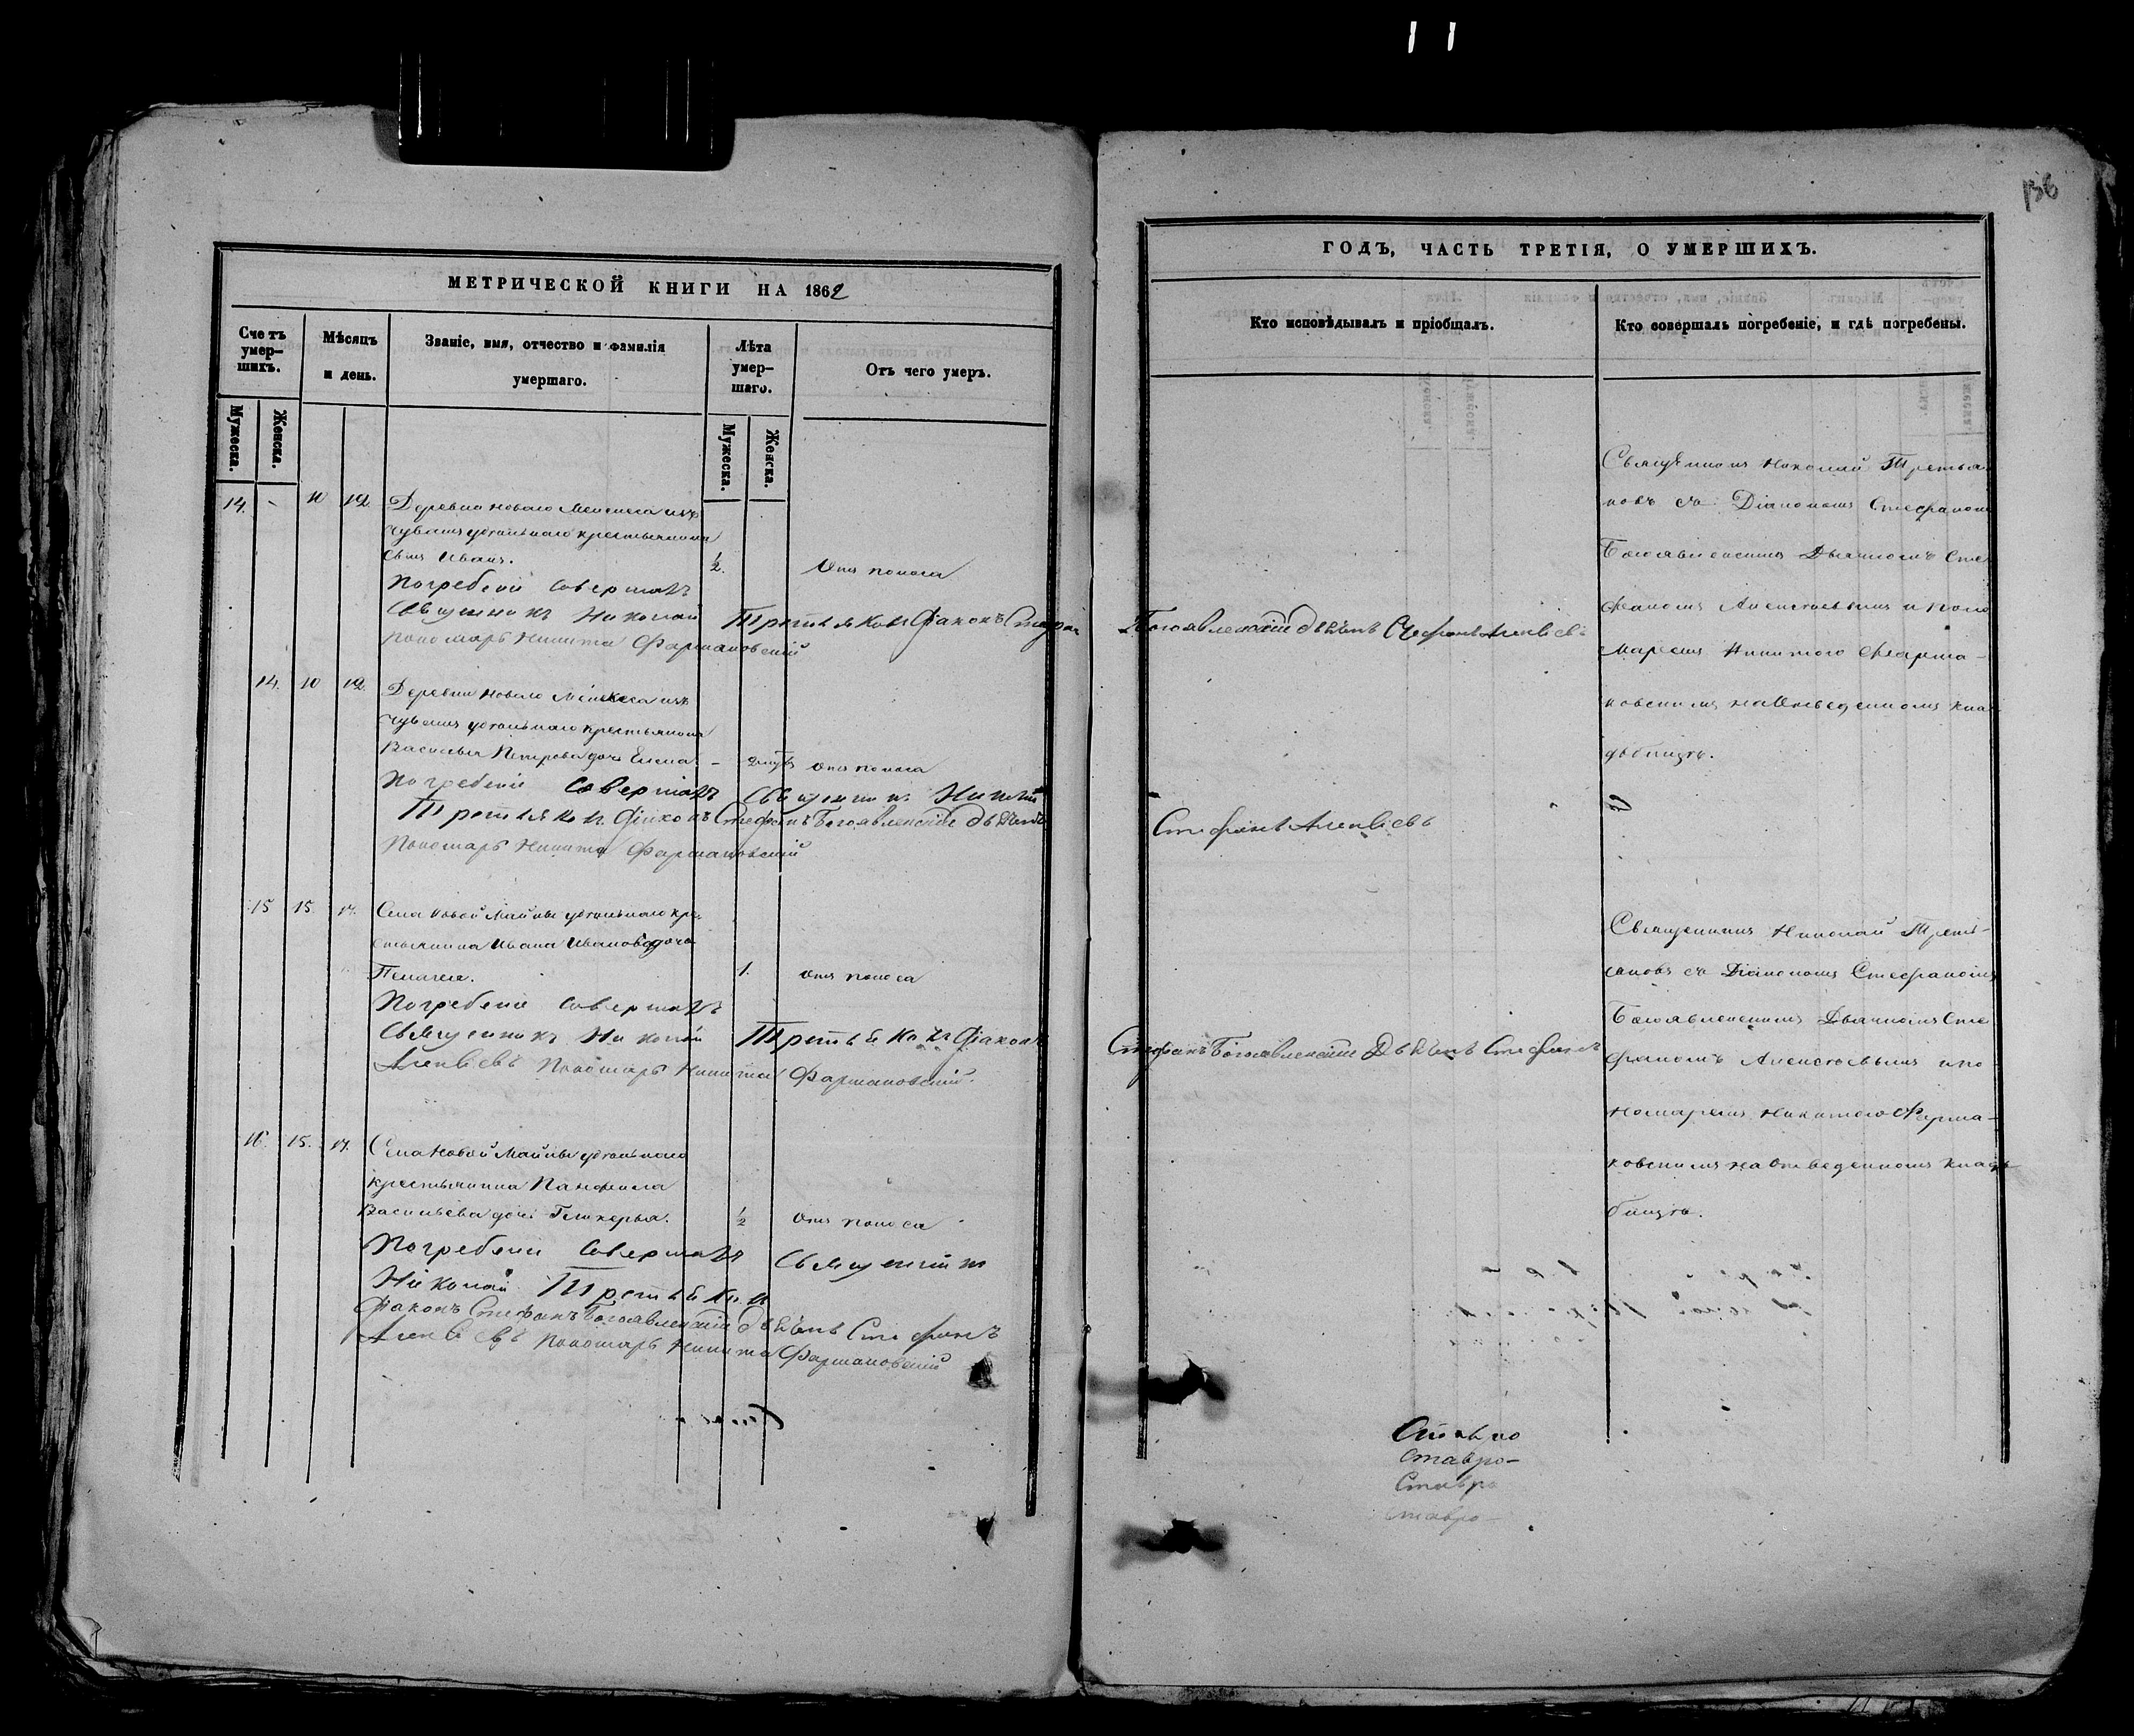 136
МЕТРИЧЕСКОЙ КНИГИ НА 1862
Счетъ умер-шихъ.
Мѣсяцъ и день.
Званіе, имя, отчество и фамилія умершаго.
Лѣта умер-шаго.
Отъ чего умеръ.
Мужеска.
Женска.
Мужеска.
Женска.
14. - 10 12. Деревни Новаго
чувашъ удѣльнаго крестьянина
сынъ Иванъ. ½. Отъ поноса
Погребеніе совершалъ
Священникъ Николай Третьяковъ Діаконъ Стефанъ
пономарь Никита Фармаковскій
14. 10 12. Деревни Новаго
чувашъ удѣльнаго крестьянина
Василья Петрова дочь Елена - Отъ поноса
Погребеніе совершалъ Священникъ Николай
Третьяковъ Діаконъ Стефанъ Богоявленскій дьячекъ
Пономарь Никита Фармаковскій
15 15. 17. Села Новой Майны удѣльнаго кре-
стьянина Ивана Иванова дочь
Пелагея. 1. Отъ поноса
Погребеніе совершалъ
Священникъ Николай Третьяковъ Діаконъ
Алексѣевъ Пономарь Никита Фармаковскій.
16. 15. 17. Села Новой Майны удѣльнаго
крестьянина Панфила
Васильева дочь Гликерья. ½ Отъ поноса
Погребеніе совершалъ Священникъ
Николай Третьяковъ
Діаконъ Стефанъ Богоявленскій дьячекъ Стефанъ
Алексѣевъ Пономарь Никита Фармаковскій
ГОДЪ, ЧАСТЬ ТРЕТІЯ, О УМЕРШИХЪ.
Кто исповѣдывалъ и пріобщалъ.
Кто совершалъ погребеніе, и гдѣ погребены.
Богоявленскій дьячекъ Стефанъ Алексѣевъ
Стефанъ Алексѣевъ
Стефанъ Богоявленскій Дьячекъ Стефанъ
Священникъ Николай Третья-
ковъ съ Діакономъ Стефаномъ
Богоявленскимъ Дьячкомъ Сте
фаномъ Алексѣевымъ и поно
маремъ Никитою Фарма-
ковскимъ на отведенномъ кла
дбищѣ.
Священникъ Николай Треть-
яковъ съ Діакономъ Стефаномъ
Богоявленскимъ Дьячкомъ Сте
фаномъ Алексѣевымъ и по
номаремъ Никитою Фарма-
ковскимъ на отведенномъ клад
бищѣ.
Ставро
Ставро-
Ставро
ставро-